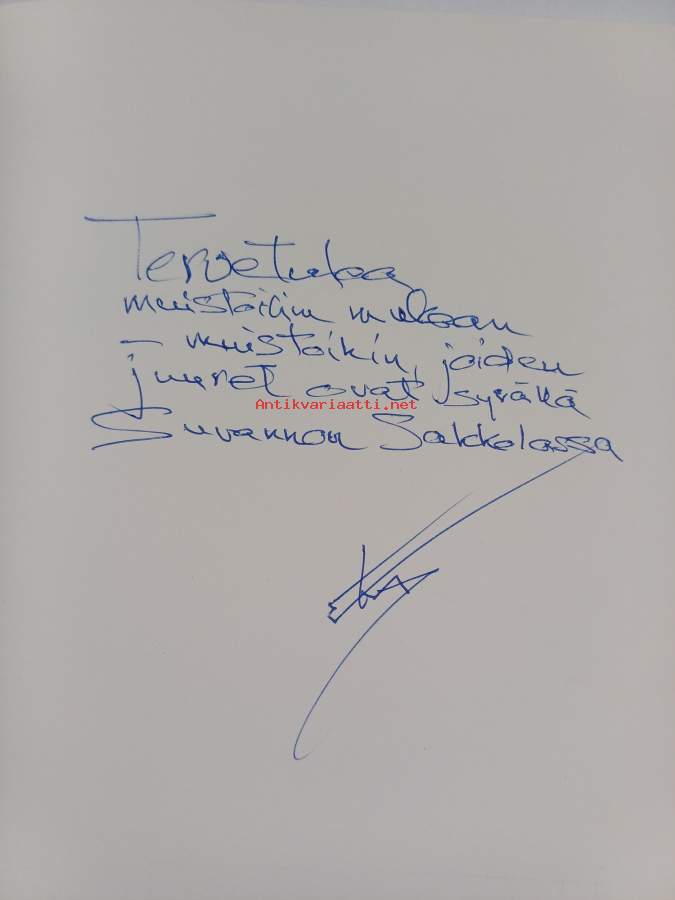 Tervetuloa
muistoihin mukaan
– muistoihin, joiden
juuret ovat syvällä
Antikvariaatti.net
Suvannon Sakkolassa